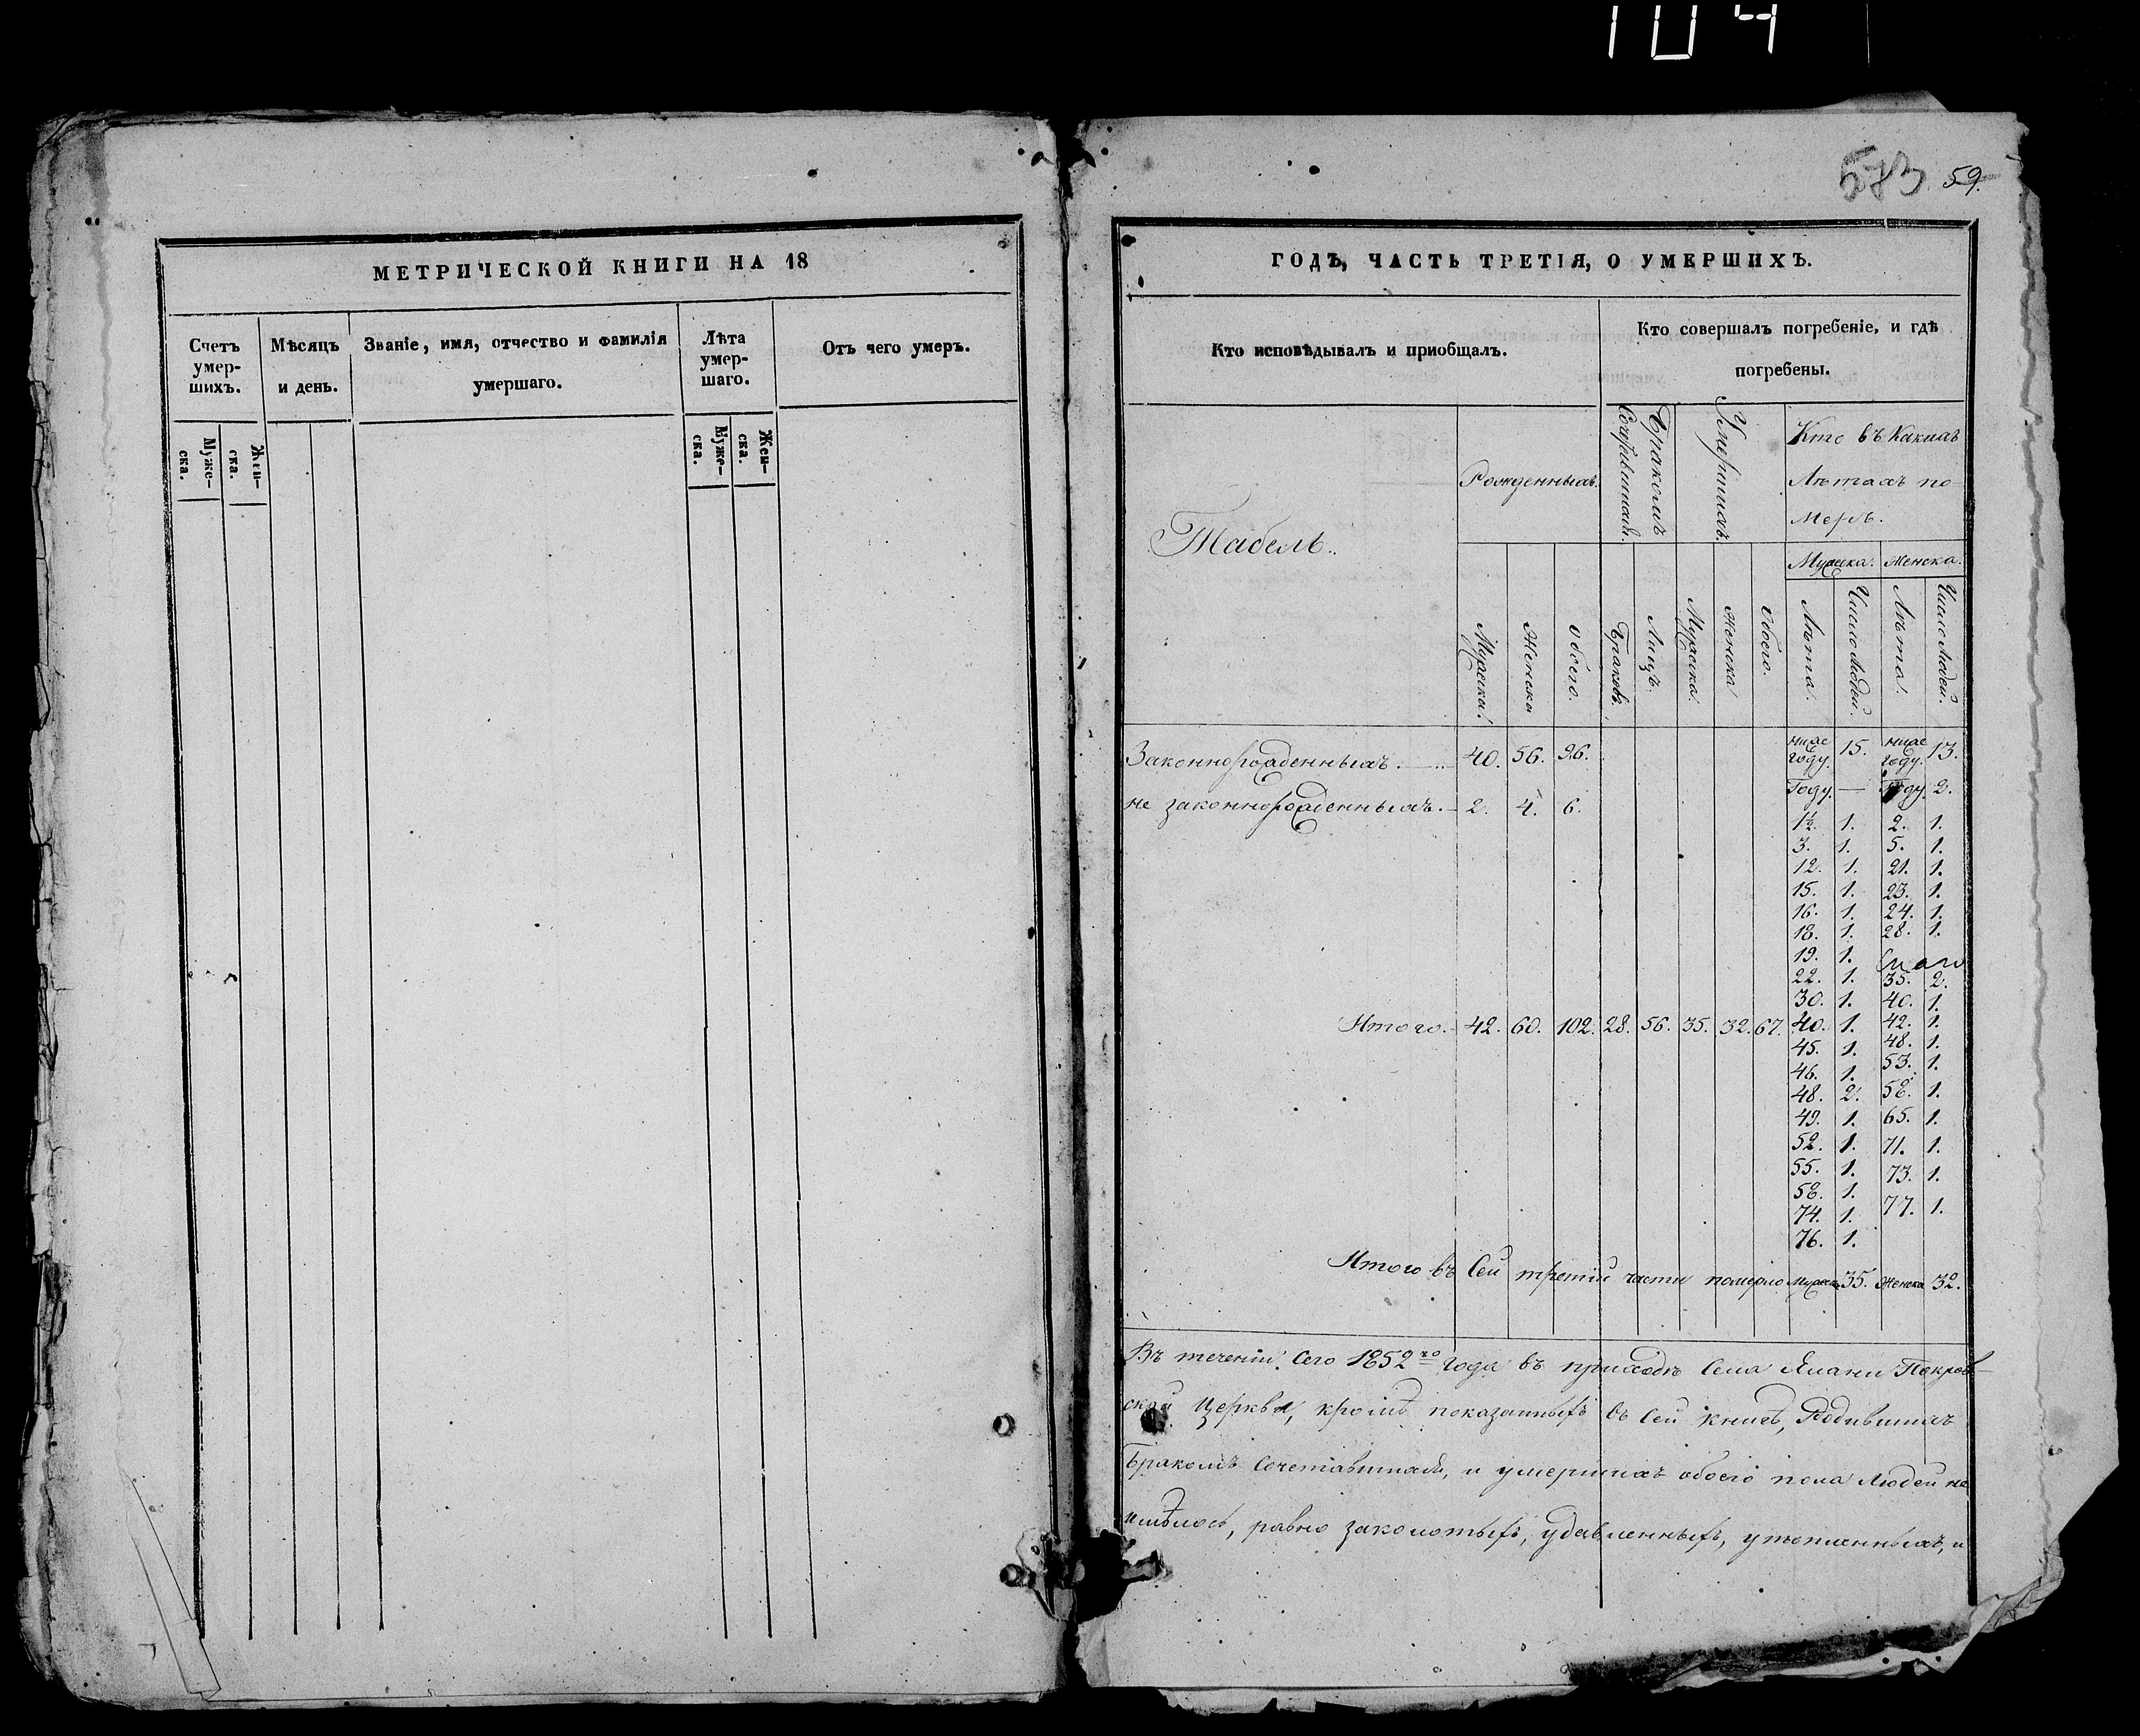 104
573 59.
МЕТРИЧЕСКОЙ КНИГИ НА 18
Счетъ умер-шихъ.
Мѣсяцъ и день.
Званіе, имя, отчество и фамилія умершаго.
Лѣта умер-шаго.
Отъ чего умеръ.
Муже-ска.
Жен-ска.
Муже-ска.
Жен-ска.
ГОДЪ, ЧАСТЬ ТРЕТІЯ, О УМЕРШИХЪ.
Кто исповѣдывалъ и приобщалъ.
Кто совершалъ погребеніе, и гдѣ
погребены.
Табель.
Рожденныхъ.
Бракомъ Сочетавшихся.
Умершихъ.
Кто въ какихъ
Лѣтахъ по-
меръ.
Мужска. Женска.
Мужска. Женска Обоего. Браковъ. Лицъ. Мужска. Женска Обоего. Лѣта. Число Людей. Лѣта. Число Людей.
Законнорожденныхъ. 40. 56. 96.
не законнорожденныхъ. 2. 4. 6.
ниже году. 15. ниже году. 13.
Году. — Году. 2.
1½. 1. 2. 1.
3. 1. 5. 1.
12. 1. 21. 1.
15. 1. 23. 1.
16. 1. 24. 1.
18. 1. 28. 1.
19. 1.
22. 1. 35. 2.
30. 1. 40. 1.
Итого. 42. 60. 102. 28. 56. 35. 32. 67. 40. 1. 42. 1.
45. 1. 48. 1.
46. 1. 53. 1.
48. 2. 58. 1.
49. 1. 65. 1.
52. 1. 71. 1.
55. 1. 73. 1.
58. 1. 77. 1.
74. 1.
76. 1.
Итого въ Сей третій части померло Мужска 35. Женска 32.
Въ теченіи Сего 1852го года въ приходѣ Села Покров-
ской Церкви, кромѣ показанныхъ въ Сей книгѣ, Родившихъ
Бракомъ Сочетавшихся, и умершихъ обоего пола Людей не
имѣлось, равно заколотыхъ, удавленныхъ, утопленныхъ, и